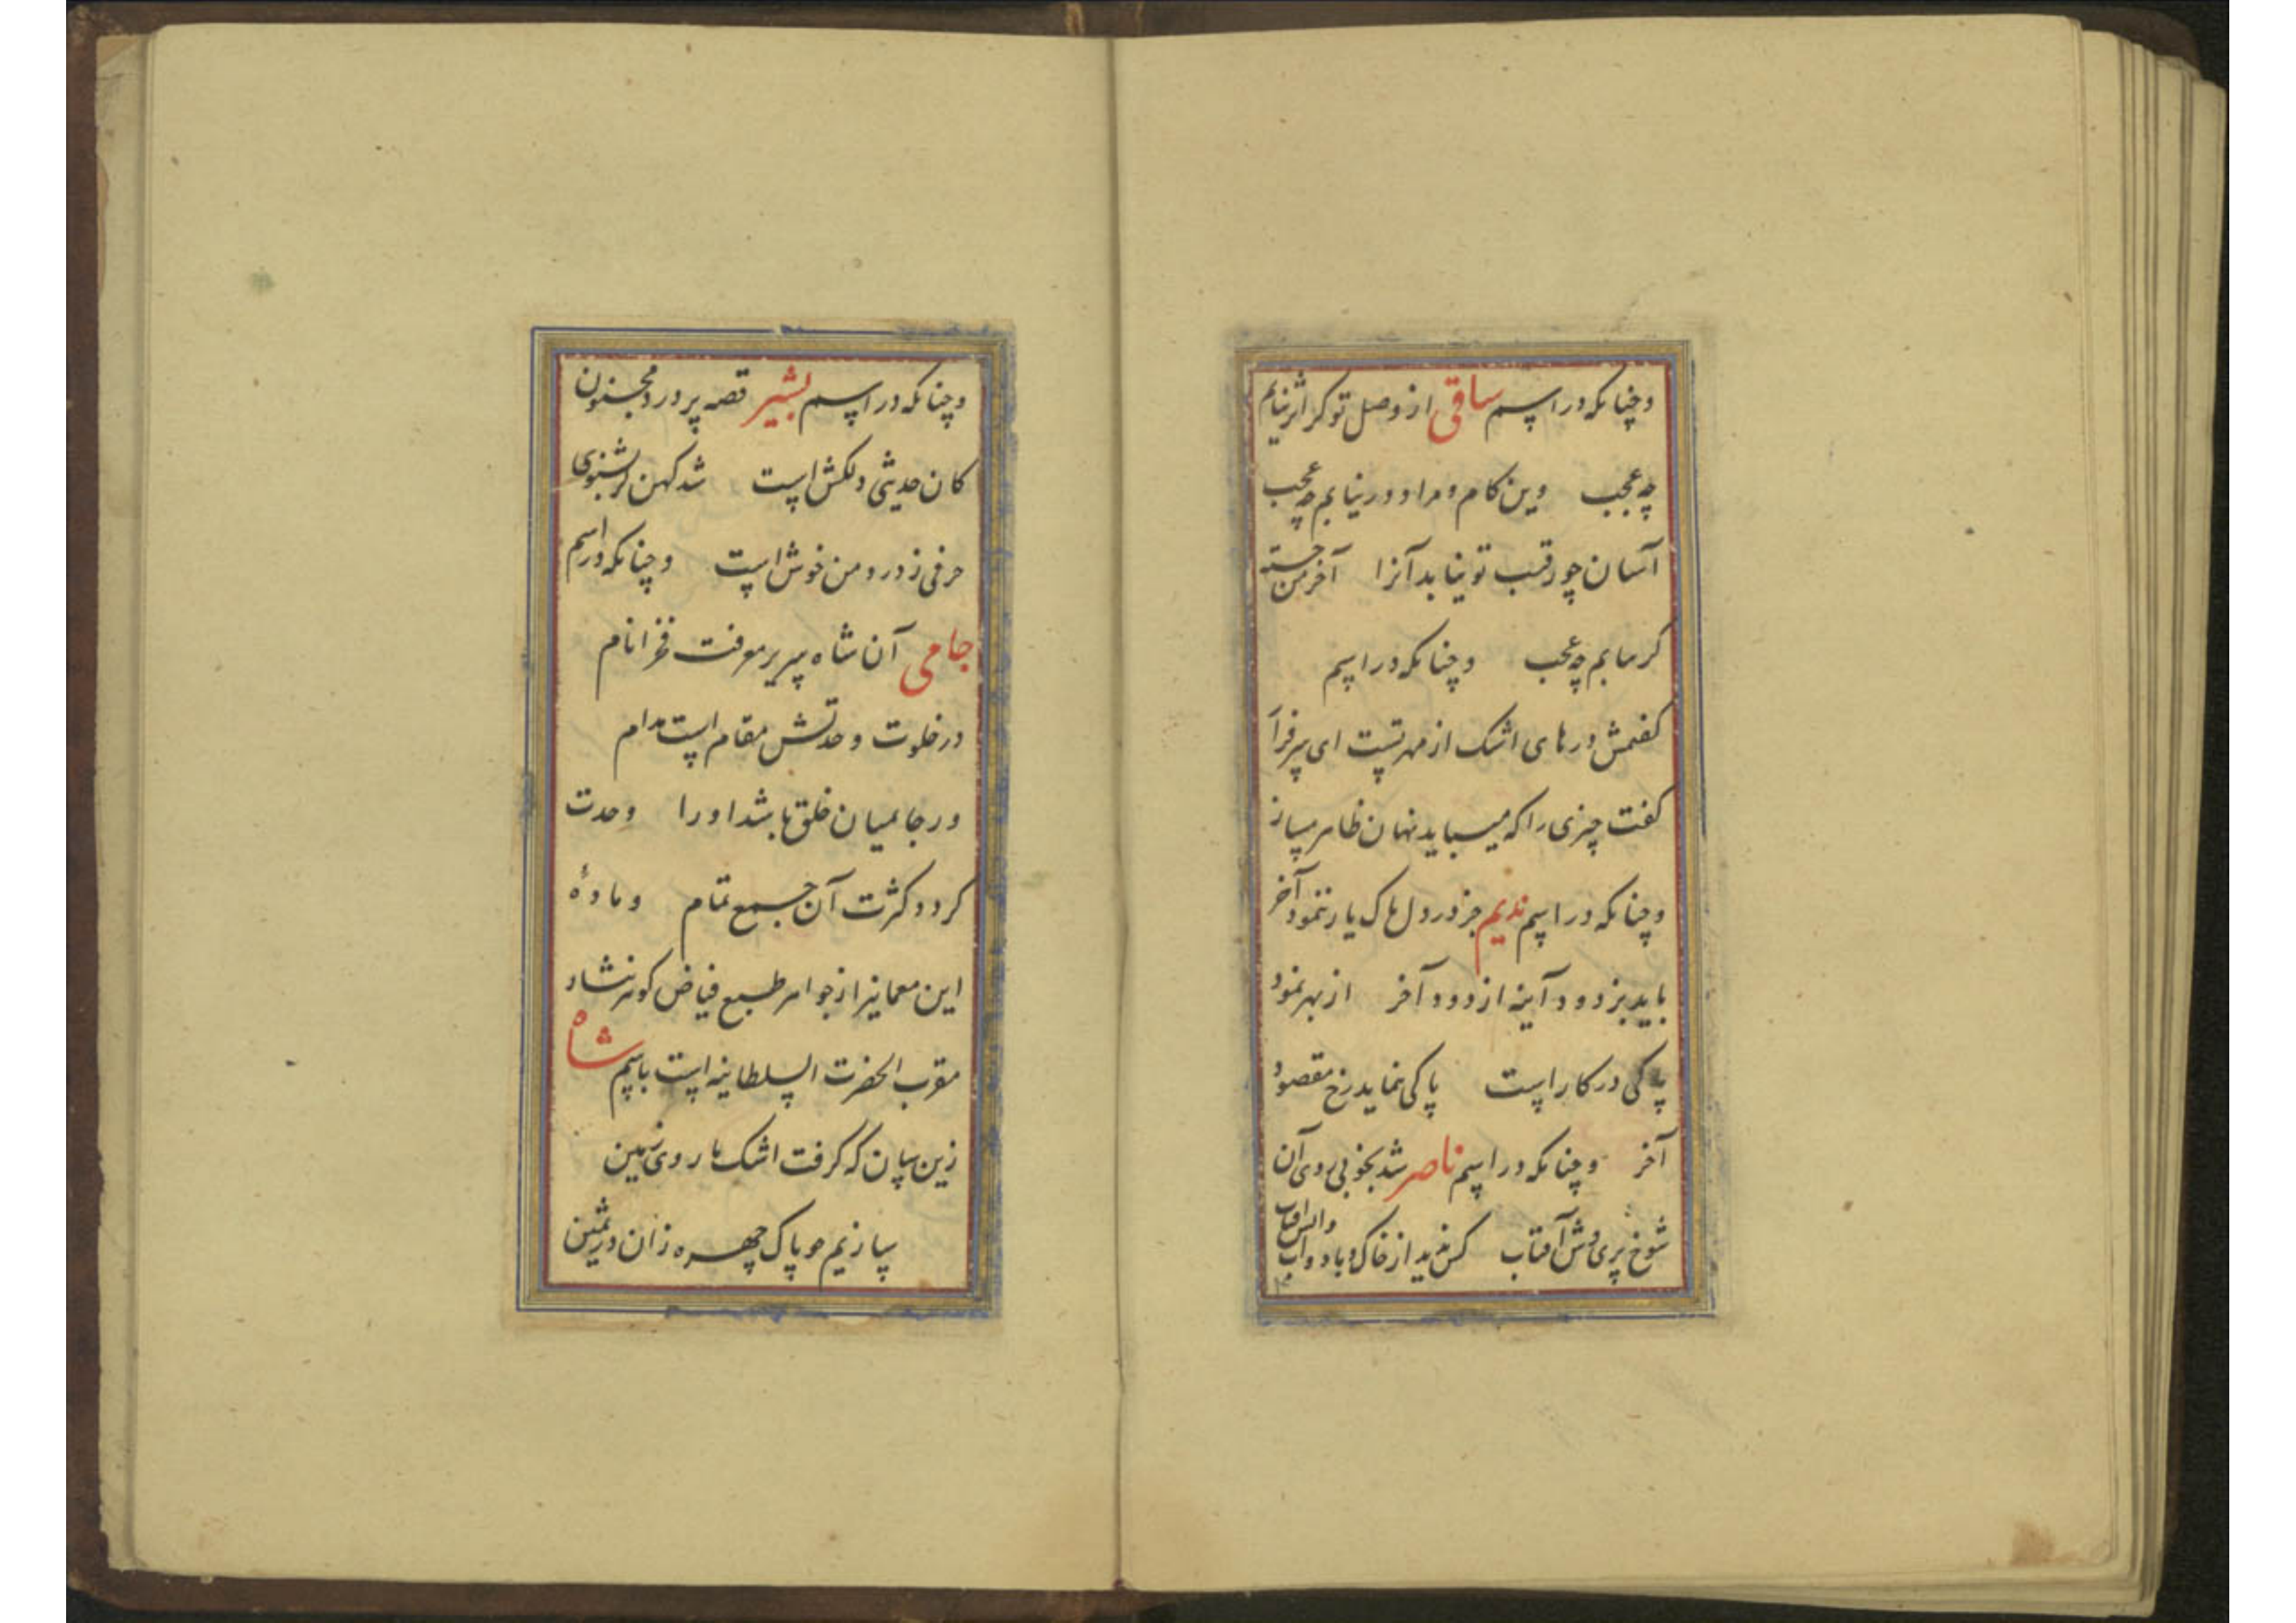 وچنانکه در اسم ساقی از وصل تو کر اثر نیابم
چه عجب وین کام و مراد در نیابم چه عجب
آسان چو رقیب تو نیابد آنرا آخر من خسته
کر نیابم چه عجب وچنانکه در اسم
کفتمش درهای اشک از مهر تست ای سرفراز
کفت چیزی را که میباید نهان ظاهر مساز
وچنانکه در اسم ندیم جز در دل پاک یار ننمود آخر
باید بزدود آینه از دود آخر از بهر نمود
پاکی در کار است پاکی نماید رخ مقصود
آخر وچنانکه در اسم ناصر شد بخوبی روی آن
شوخ پری وش آفتاب کس ندید از خاک و باد و آب
وچنانکه در اسم بشیر قصه پر درد مجنون
کان حدیثی دلکش است شد کهن کر بشنوی
حرفی ز درد من خوش است وچنانکه در اسم
جامی آن شاه سریر معرفت فخر انام
در خلوت وحدتش مقام است مدام
ور جا بمیان خلق باشد او را وحدت
کردد کثرت آن جمع تمام و مادهٔ
این معما نیز از جواهر طبع فیاض کوهر نثار
مقرب الحضرت السلطانیه است باسم شاه
زین سان که کرفت اشک ما روی زمین
سازیم چو پاک چهره زان در ثمین